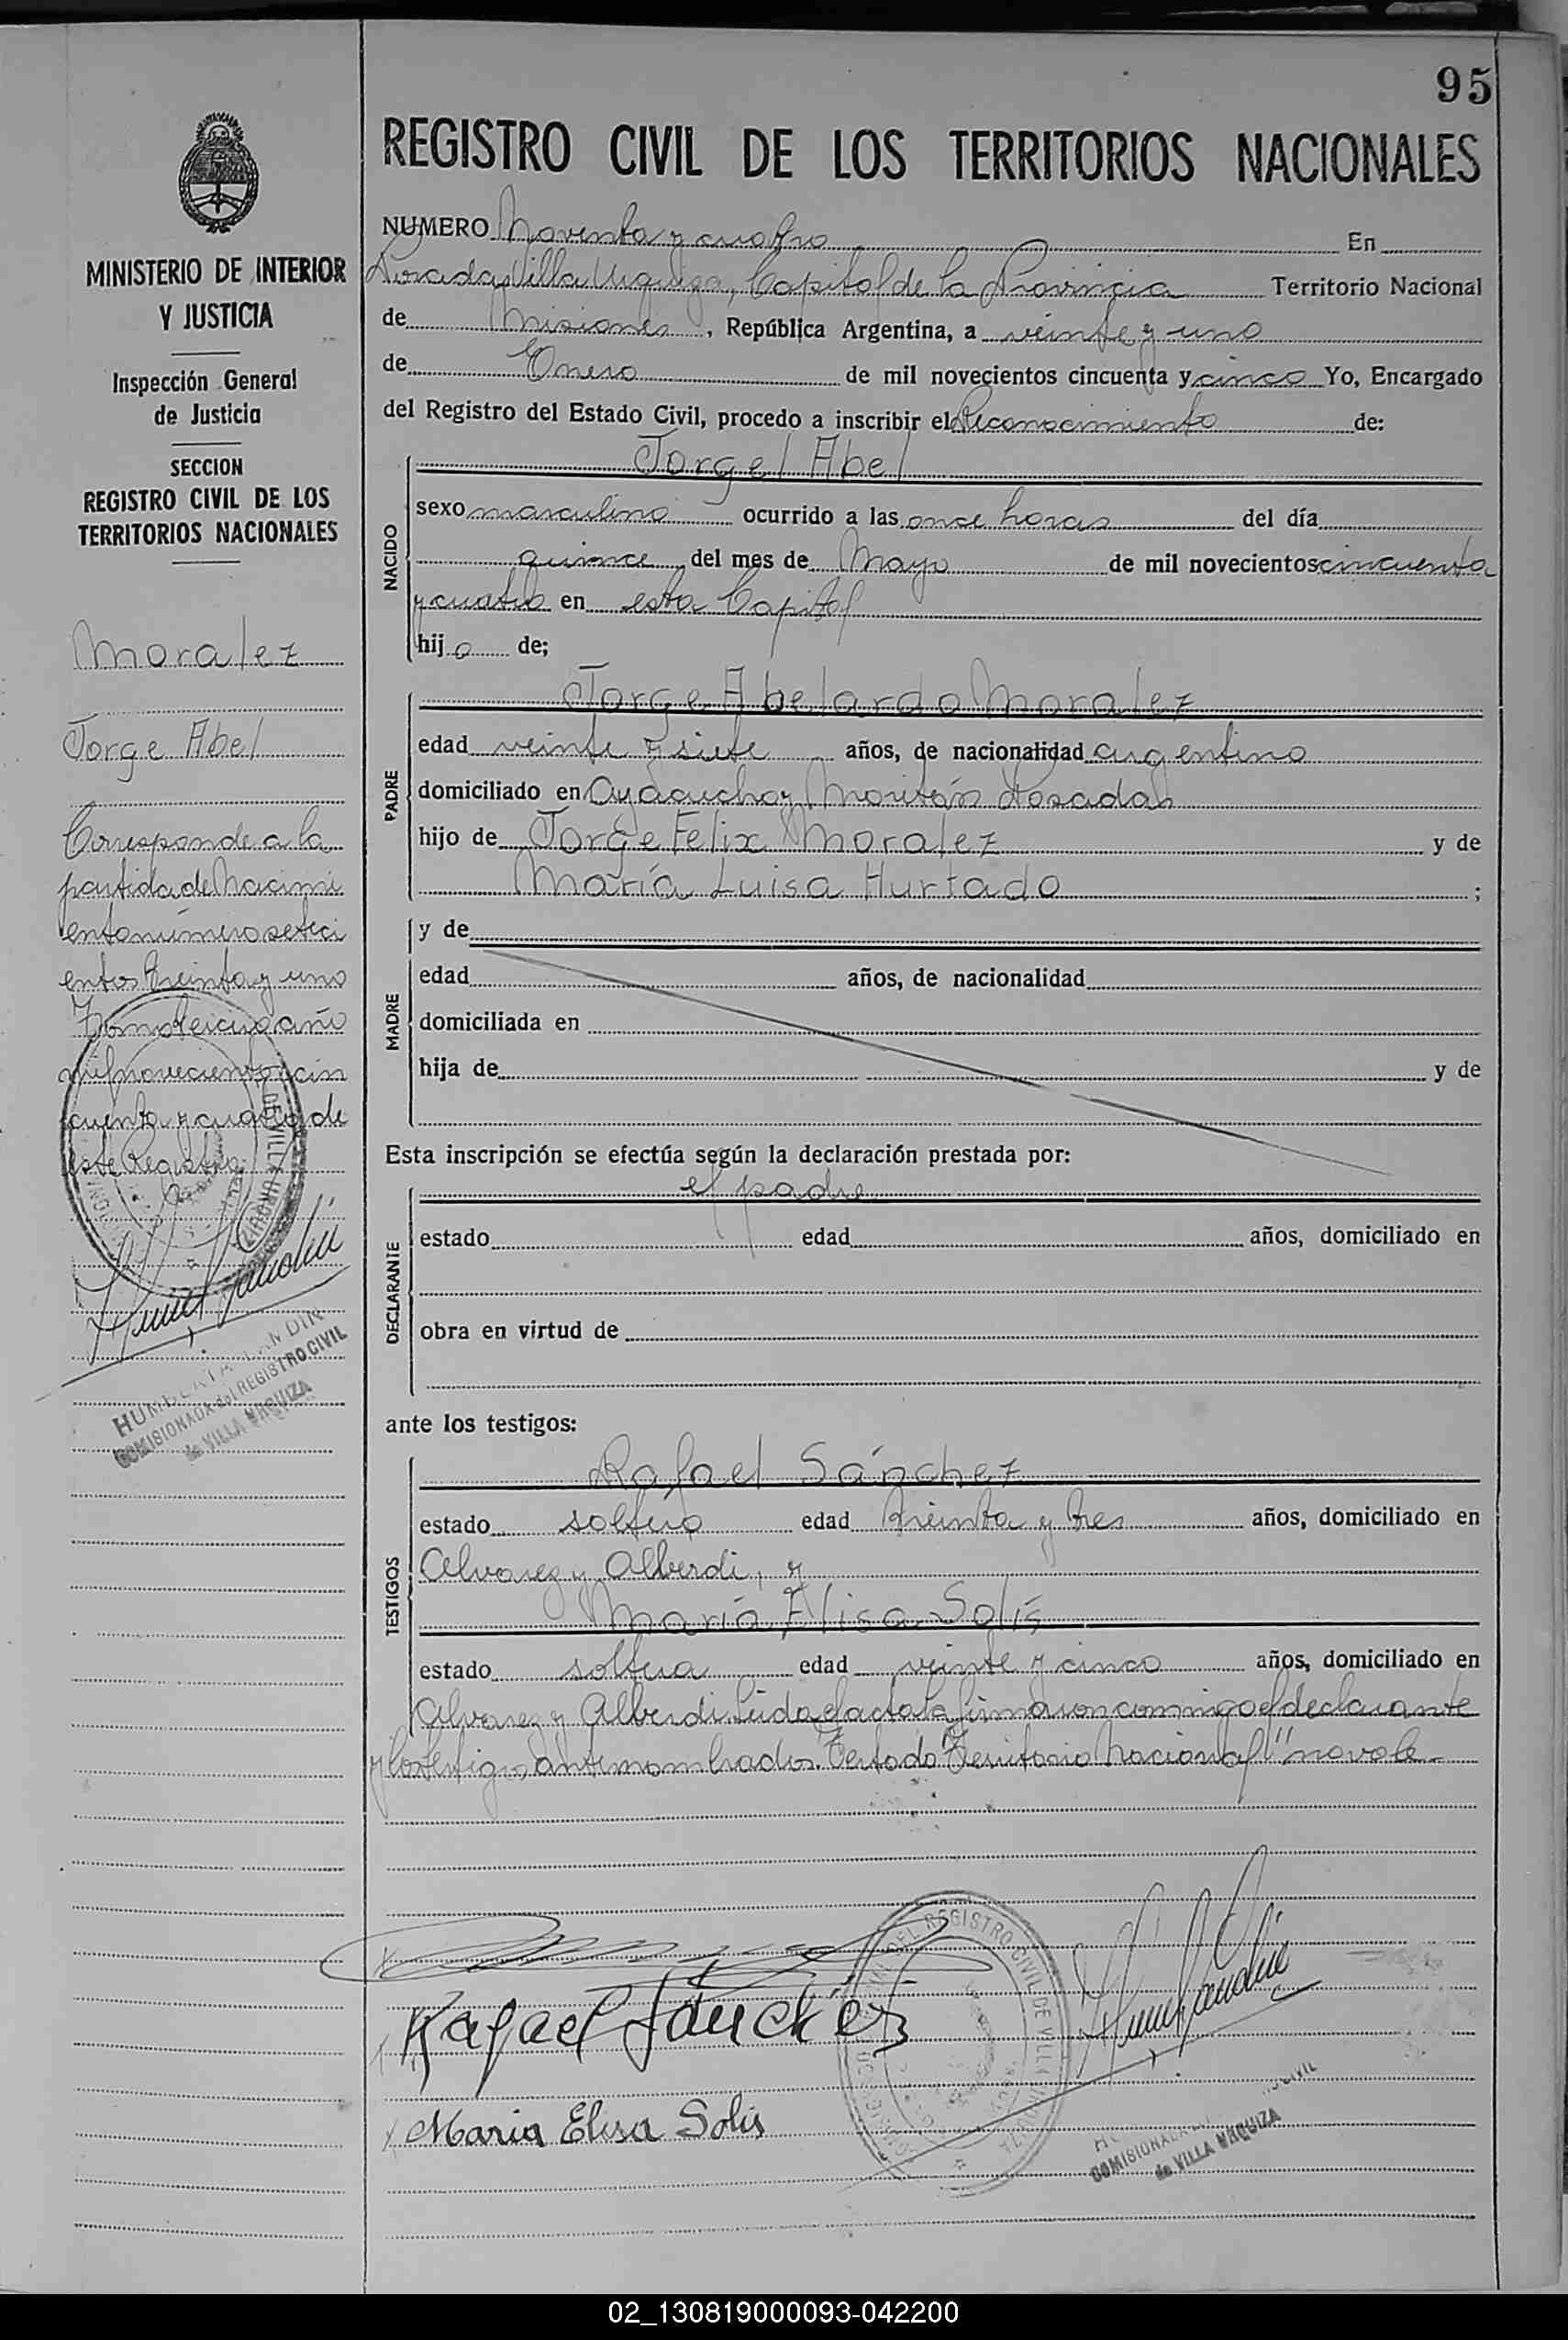 95
REGISTRO CIVIL DE LOS TERRITORIOS NACIONALES
MINISTERIO DE INTERIOR
Y JUSTICIA
Inspección General
de Justicia
SECCION
REGISTRO CIVIL DE LOS
TERRITORIOS NACIONALES
Moralez
Jorge Abel
Corresponde a la
partida de Nacimi
ento número seteci
entos treinta y uno
Tomo tercero año
mil novecientos cin
cuenta y cuatro de
este Registro
COMISIONADA del REGISTRO CIVIL
de VILLA URQUIZA
NUMERO Noventa y cuatro En
Posadas Villa Urquiza, Capital de la Provincia Territorio Nacional
de Misiones, República Argentina, a veinte y uno
de Enero de mil novecientos cincuenta y cinco Yo, Encargado
del Registro del Estado Civil, procedo a inscribir el Reconocimiento de:
NACIDO
Jorge Abel
sexo masculino ocurrido a las once horas del día
quince del mes de Mayo de mil novecientos cincuenta
y cuatro en esta Capital
hijo de;
PADRE
Jorge Abelardo Moralez
edad veinte y siete años, de nacionalidad argentino
domiciliado en Ayacucho y Posadas
hijo de Jorge Felix Moralez y de
María Luisa Hurtado ;
MADRE
y de
edad años, de nacionalidad
domiciliada en
hija de y de
Esta inscripción se efectúa según la declaración prestada por:
DECLARANTE
el padre
estado edad años, domiciliado en
obra en virtud de
ante los testigos:
TESTIGOS
Rafael Sánchez
estado soltero edad treinta y tres años, domiciliado en
Alvarez y Alberdi, y
María Elisa Solís
estado soltera edad veinte y cinco años, domiciliado en
Alvarez y Alberdi. Leida el acta la firmaron conmigo el declarante
y los testigos antenombrados. Testado "Territorio Nacional" no vale.
Rafael Sánchez
Maria Elisa Solis
DEL REGISTRO CIVIL DE VILLA
de VILLA URQUIZA
02_130819000093-042200